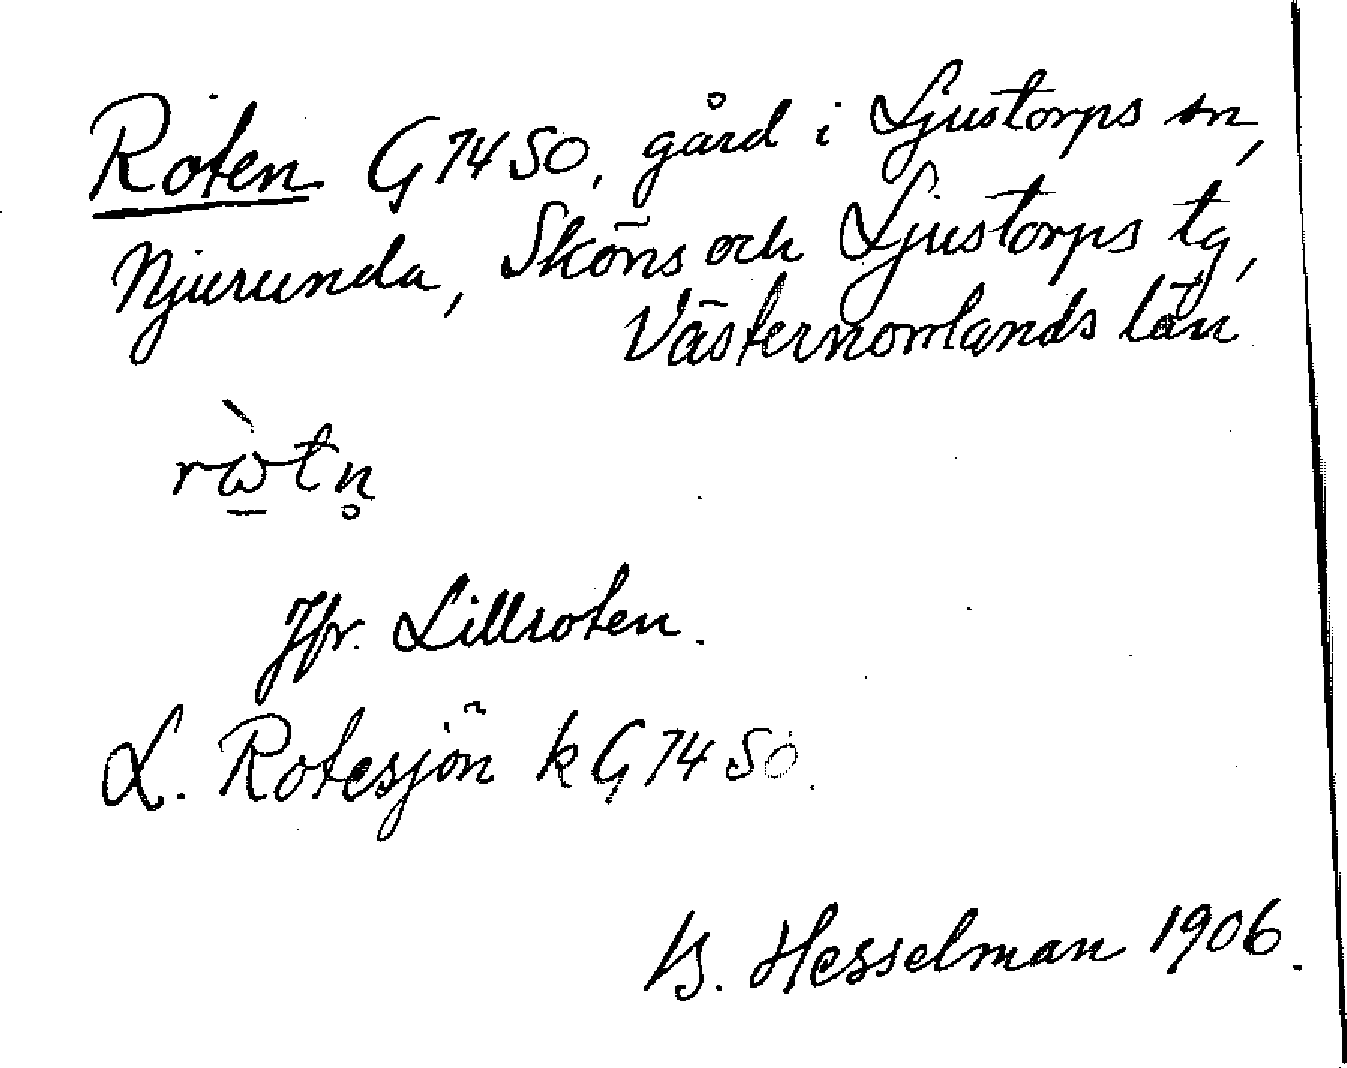 Roten G 74 SO, gård i Ljustorps sn,
Njurunda, Sköns och Ljustorps tg,
Västernorrlands län
rὼtn̥
Jfr. Lillroten.
L. Rotesjön k G 74 SO.
B. Hesselman 1906.